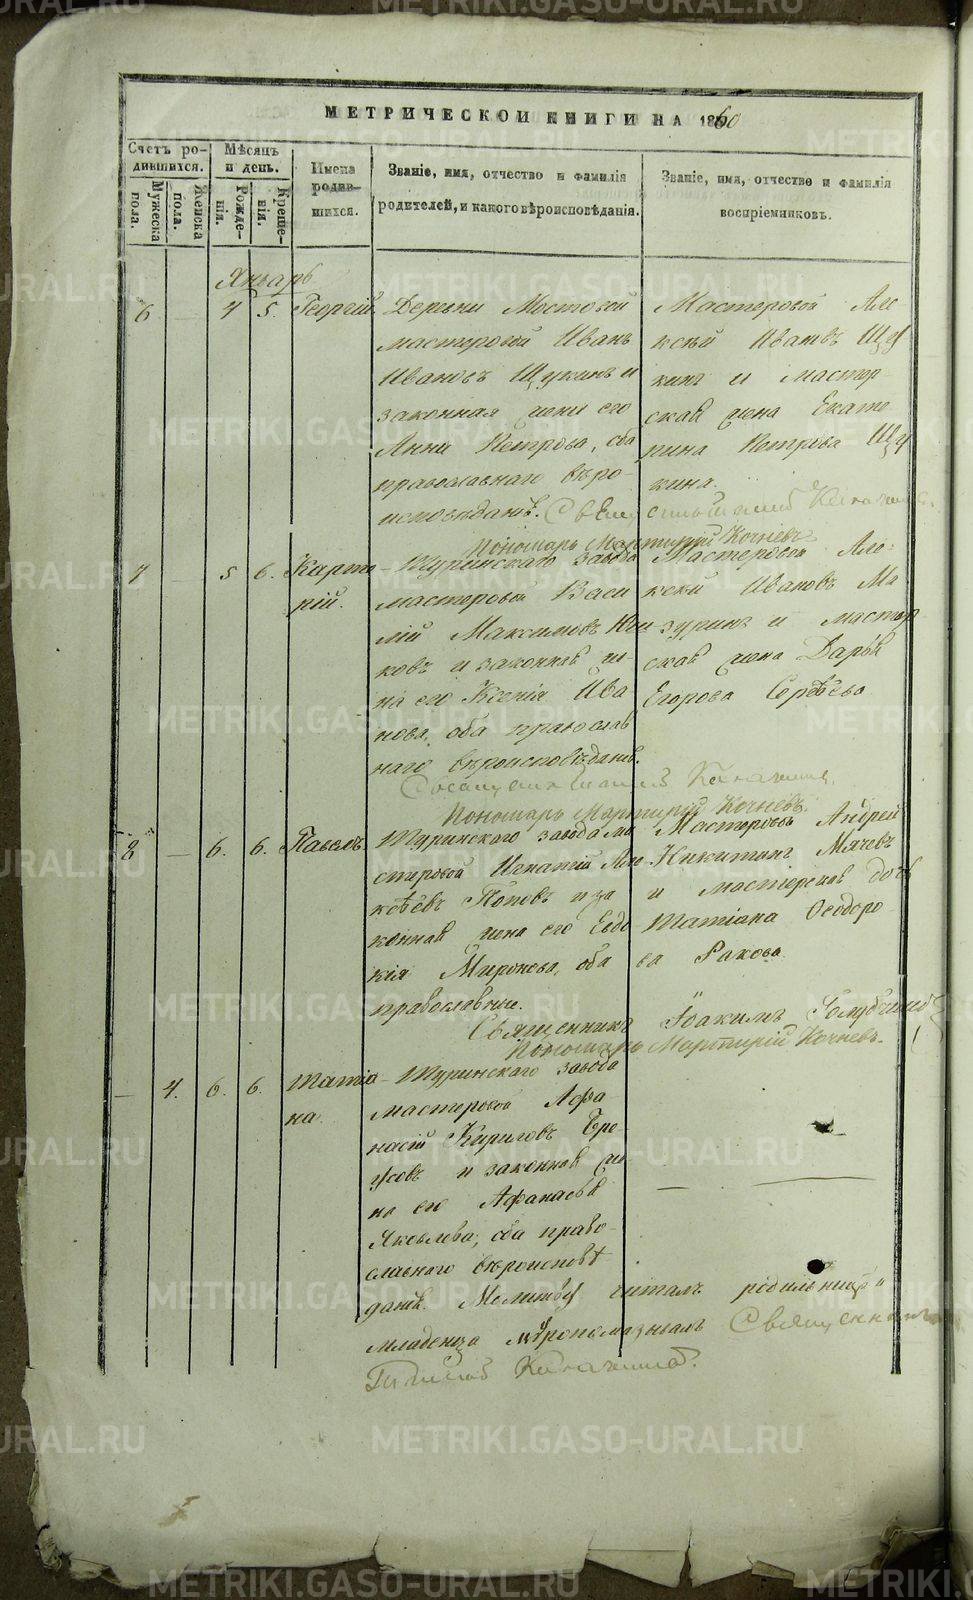 МЕТРИЧЕСКОЙ КНИГИ НА 1860
Счетъ родившихся.
Мужеска пола.
Женска пола.
Мѣсяцъ и день.
Рожденія.
Крещенія.
Имена родившихся.
Званіе, имя, отчество и фамилія
родителей, и какого вѣроисповѣданія.
Званіе, имя, отчество и фамилія
воспріемниковъ.
Январь
6 4 5. Георгій.
Деревни Мостовой
мастеровой Иванъ
Ивановъ Щукинъ и
законная жена его
Анна Петрова, оба
православнаго вѣро-
исповѣданія.
Мастеровой Але
ксѣй Ивановъ Щу
кинъ и мастер-
ская жена Екате
рина Петрова Щу
кина.
Пономарь Мартирій Кочневъ
7 — 5 6. Карте
рій.
Туринскаго завода
мастеровой Васи
лій Максимовъ
ковъ и законная же
на его Ксенія Ива
нова, оба православ
наго вѣроисповѣданія.
Мастеровой Але-
ксѣй Ивановъ Ма
зуринъ и мастер
ская жена Дарья
Егорова Сергѣева
Пономарь Мартирій Кочневъ.
8 — 6. 6. Павелъ
Туринскаго завода ма
стеровой Игнатій Але-
ксѣевъ Поповъ и за
конная жена его Евдо
кія Миронова, оба
православные.
Мастеровой Андрей
Никитинъ Мячевъ
и мастерская дочь
Татіана Ѳеодоро
ва Ракова.
Священникъ Іоакимъ
Пономарь Мартирій Кочневъ.
— 4. 6. 6. Татіа-
на.
Туринскаго завода
мастеровой Аѳа
насій Кириловъ
и законная же
на его Аѳанасья
Яковлева, оба право-
славнаго вѣроисповѣ
данія. Молитву читалъ родильницѣ и
младенца мѵропомазывалъ Священникъ
METRIKI.GASO-URAL.RU